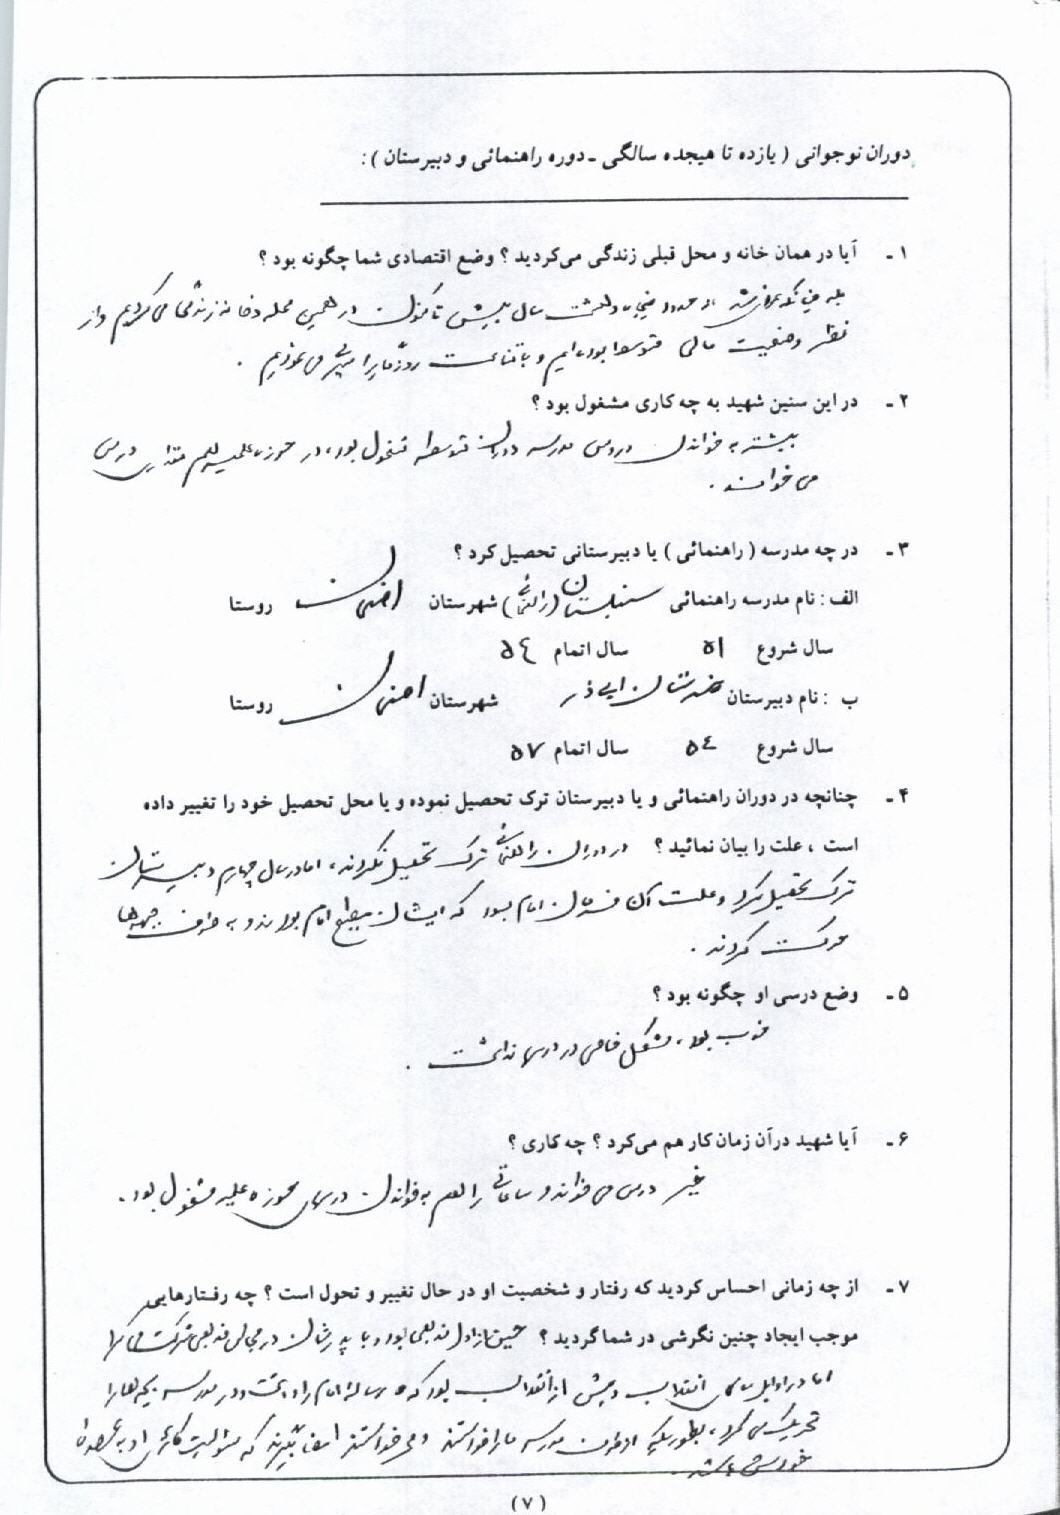 دوران نوجوانی ( یازده تا هیجده سالگی - دوره راهنمائی و دبیرستان ) :
۱ - آیا در همان خانه و محل قبلی زندگی می‌کردید ؟ وضع اقتصادی شما چگونه بود ؟
بله از حدود پنجاه و هشت سال پیش تا کنون در همین محله و خانه زندگی می کردیم و از
نظر وضعیت مالی متوسط بوده ایم و با قناعت روزگار را سپری می نمودیم .
۲ - در این سنین شهید به چه کاری مشغول بود ؟
بیشتر به خواندن دروس مدرسه دوران متوسطه مشغول بود ، در حوزه علمیه هم مقداری درس
می خواندند .
۳ - در چه مدرسه ( راهنمائی ) یا دبیرستانی تحصیل کرد ؟
الف : نام مدرسه راهنمائی سنبلستان (راهنمائی) شهرستان اصفهان روستا
سال شروع ۵۱ سال اتمام ۵۴
ب : نام دبیرستان هنرستان ابی ذر شهرستان اصفهان روستا
سال شروع ۵۴ سال اتمام ۵۷
۴ - چنانچه در دوران راهنمائی و یا دبیرستان ترک تحصیل نموده و یا محل تحصیل خود را تغییر داده
است ، علت را بیان نمائید ؟ در دوران راهنمائی ترک تحصیل نکردند ، اما در سال چهارم دبیرستان
ترک تحصیل کرد و علت آن فرمان امام بود که ایشان مطیع امام بودند و به طرف جبهه ها
حرکت کردند .
۵ - وضع درسی او چگونه بود ؟
خوب بود ، مشکل خاصی در درسها نداشت .
۶ - آیا شهید در آن زمان کار هم می‌کرد ؟ چه کاری ؟
خیر درس می خواند و ساعاتی را هم به خواندن درسهای حوزه علمیه مشغول بود .
۷ - از چه زمانی احساس کردید که رفتار و شخصیت او در حال تغییر و تحول است ؟ چه رفتارهایی
موجب ایجاد چنین نگرشی در شما گردید ؟ حسین از اول مذهبی بود و با پدرشان در مجالس مذهبی شرکت می کرد
اما در اوایل سالهای انقلاب و پیش از انقلاب بود که رساله امام را داشت و در مدرسه بچه ها را
تحریک می کرد ، بطوریکه از طرف مدرسه ما را خواستند و می خواستند امضا بگیرند که مسئولیت کارهای او به عهده
خودش باشد .
(۷)